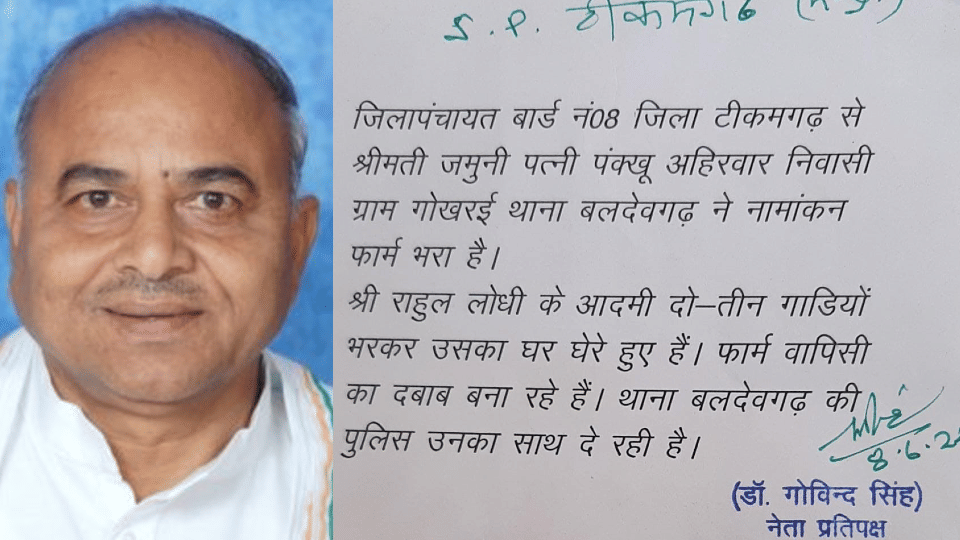 S. P. टीकमगढ़
जिलापंचायत बार्ड नं08 जिला टीकमगढ़ से
श्रीमती जमुनी पत्नी पंक्खू अहिरवार निवासी
ग्राम गोखरई थाना बलदेवगढ़ ने नामांकन
फार्म भरा है।
श्री राहुल लोधी के आदमी दो–तीन गाडियों
भरकर उसका घर घेरे हुए हैं। फार्म वापिसी
का दबाब बना रहे हैं। थाना बलदेवगढ़ की
पुलिस उनका साथ दे रही है।
(डॉ. गोविन्द सिंह)
नेता प्रतिपक्ष